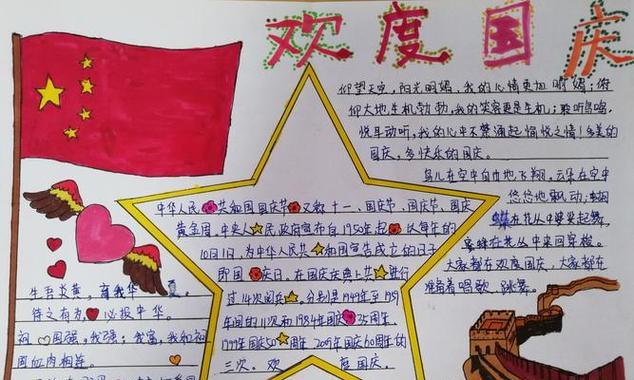 欢度国庆
仰望天空，阳光明媚，我的心情更加明媚；俯
仰大地，生机勃勃，我的笑容更是生机；聆听鸟鸣，
悦耳动听，我的心中不禁涌起愉悦之情！多美的
国庆，多快乐的国庆。
鸟儿在空中自由地飞翔，云朵在空中
悠悠地飘动，蝴
蝶在花丛中翠翠起舞，
蜜蜂在花丛中来回穿梭。
大家都在欢度国庆，大家都在
准备着唱歌、跳舞。
中华人民共和国国庆节又称十一、国庆节、国庆节、国庆
黄金周。中央人民政府宣布自1950年起，以每年的
10月1日，为中华人民共和国宣告成立的日子
即国庆日。在国庆庆典上共进行
过14次阅兵，分别是1949年至1959
年间的11次和1984年国庆35周年、
1999年国庆50周年、2009年国庆60周年的
三次。欢度国庆。
生吾炎黄，育我华夏。
待之有为，必报中华。
祖国强，我强；我富，我和祖
国血肉相连。